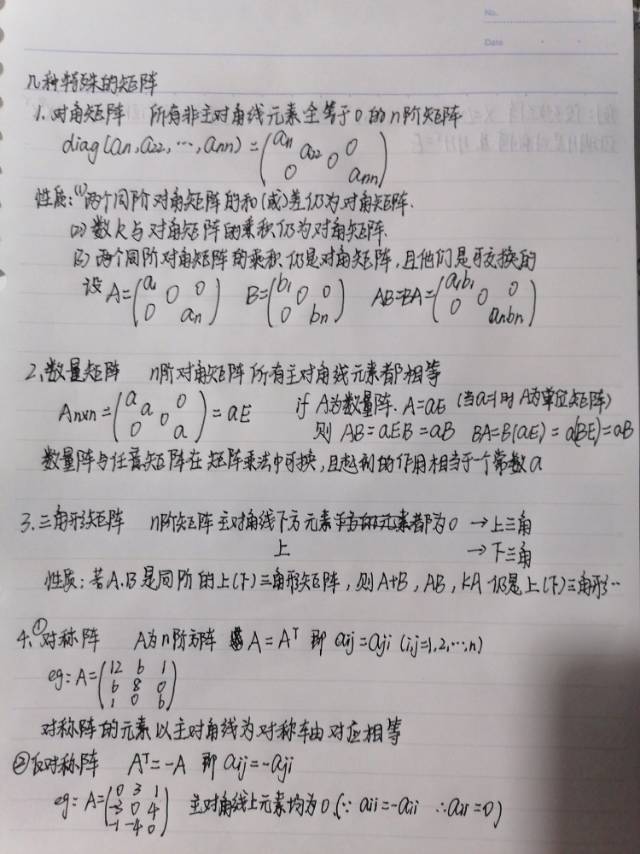 No.
Date
几种特殊的矩阵
1. 对角矩阵 所有非主对角线元素全等于0的n阶矩阵
diag(a₁₁, a₂₂, ⋯, aₙₙ) = (a₁₁ a₂₂ 0 0 0 aₙₙ)
性质: ⑴两个同阶对角矩阵的和(或)差仍为对角矩阵.
⑵ 数k与对角矩阵的乘积仍为对角矩阵.
⑶ 两个同阶对角矩阵的乘积仍是对角矩阵, 且他们是可交换的
设 A=(a₁ 0 0 0 aₙ) B=(b₁ 0 0 0 bₙ) AB=BA=(a₁b₁ 0 0 0 aₙbₙ)
2. 数量矩阵 n阶对角矩阵所有主对角线元素都相等
Aₙₓₙ = (a a 0 0 0 a) = aE if A为数量阵. A=aE (当a=1时 A为单位矩阵)
则 AB = aEB = aB BA=B(aE) = a(BE)=aB
数量阵与任意矩阵在矩阵乘法中可换, 且起到的作用相当于一个常数a
3. 三角形矩阵 n阶矩阵主对角线下方元素都为0 → 上三角
上 → 下三角
性质: 若A.B是同阶的上(下)三角形矩阵, 则A+B, AB, kA 仍是上(下)三角形⋯
4. ①对称阵 A为n阶方阵 A = Aᵀ 即 aij = aji (i,j=1,2,⋯,n)
eg: A = (12 6 1
6 8 0
1 0 6)
对称阵的元素以主对角线为对称轴对应相等
②反对称阵 Aᵀ = -A 即 aij = -aji
eg: A = (0 3 1
-3 0 4
-1 -4 0) 主对角线上元素均为0.(∵ aii = -aii ∴ aii = 0)